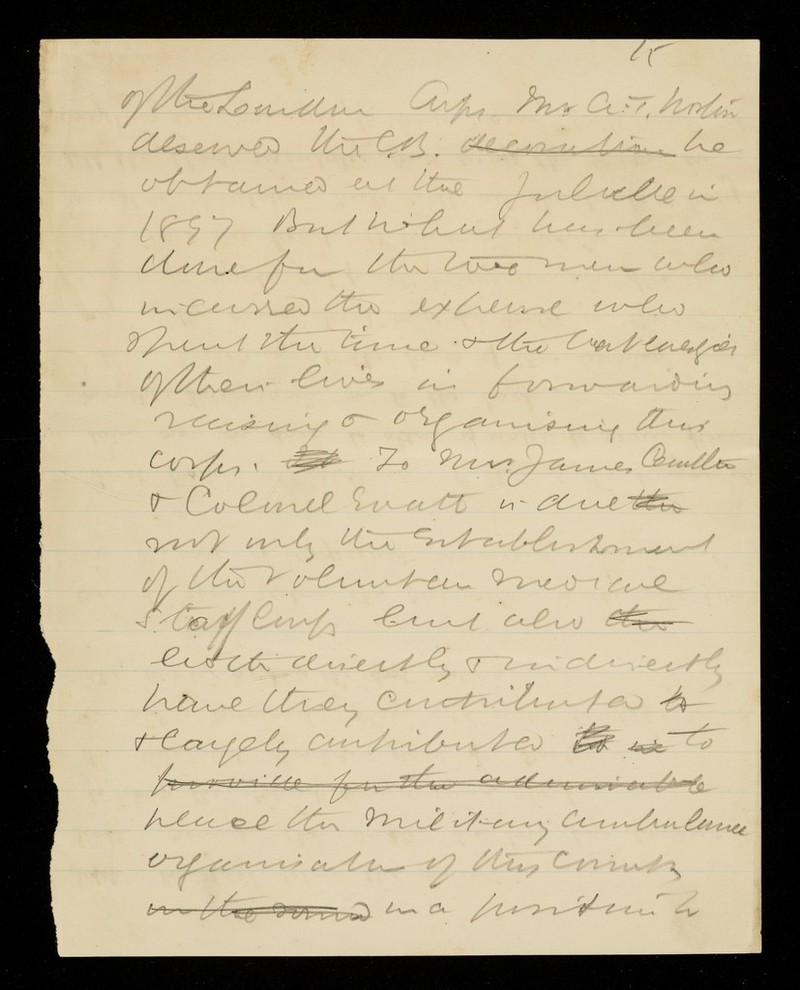 15
of the London Corps Mr A. T. Norton
deserved the C.B. decoration he
obtained at the Jubilee in
1897 But what has been
done for the two men who
incurred the expense who
spent the time & the best energies
of their lives in forwarding
raising & organising this
corps. To Mr James Cantlie
& Colonel Evatt is due the
not only the Establishment
of the Volunteer Medical
Staff Corps but also the
both directly & indirectly
have they contributed to
& largely contributed to to
provide for the admirable
place the Military Ambulance
organisation of this County
on the sound in a position to